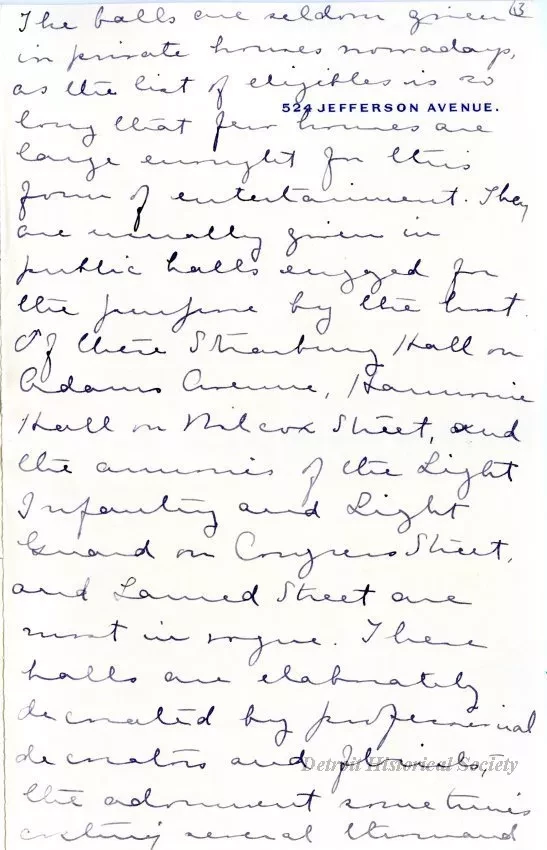 13
The balls are seldom given
in private houses nowadays,
as the list of eligibles is so
524 JEFFERSON AVENUE.
long that few houses are
large enought for this
form of entertainment. They
are usually given in
public halls engged for
the purpose by the host.
Of these Strasburg Hall on
Adams Avenue, Harmonie
Hall on Wilcox Street, and
the armories of the Light
Infantry and Light
Guard on Congress Street,
and Larned Street are
most in vogue. These
halls are elaborately
decorated by professional
decorators and florists,
Detroit Historical Society
the adornment sometimes
costing several thousand